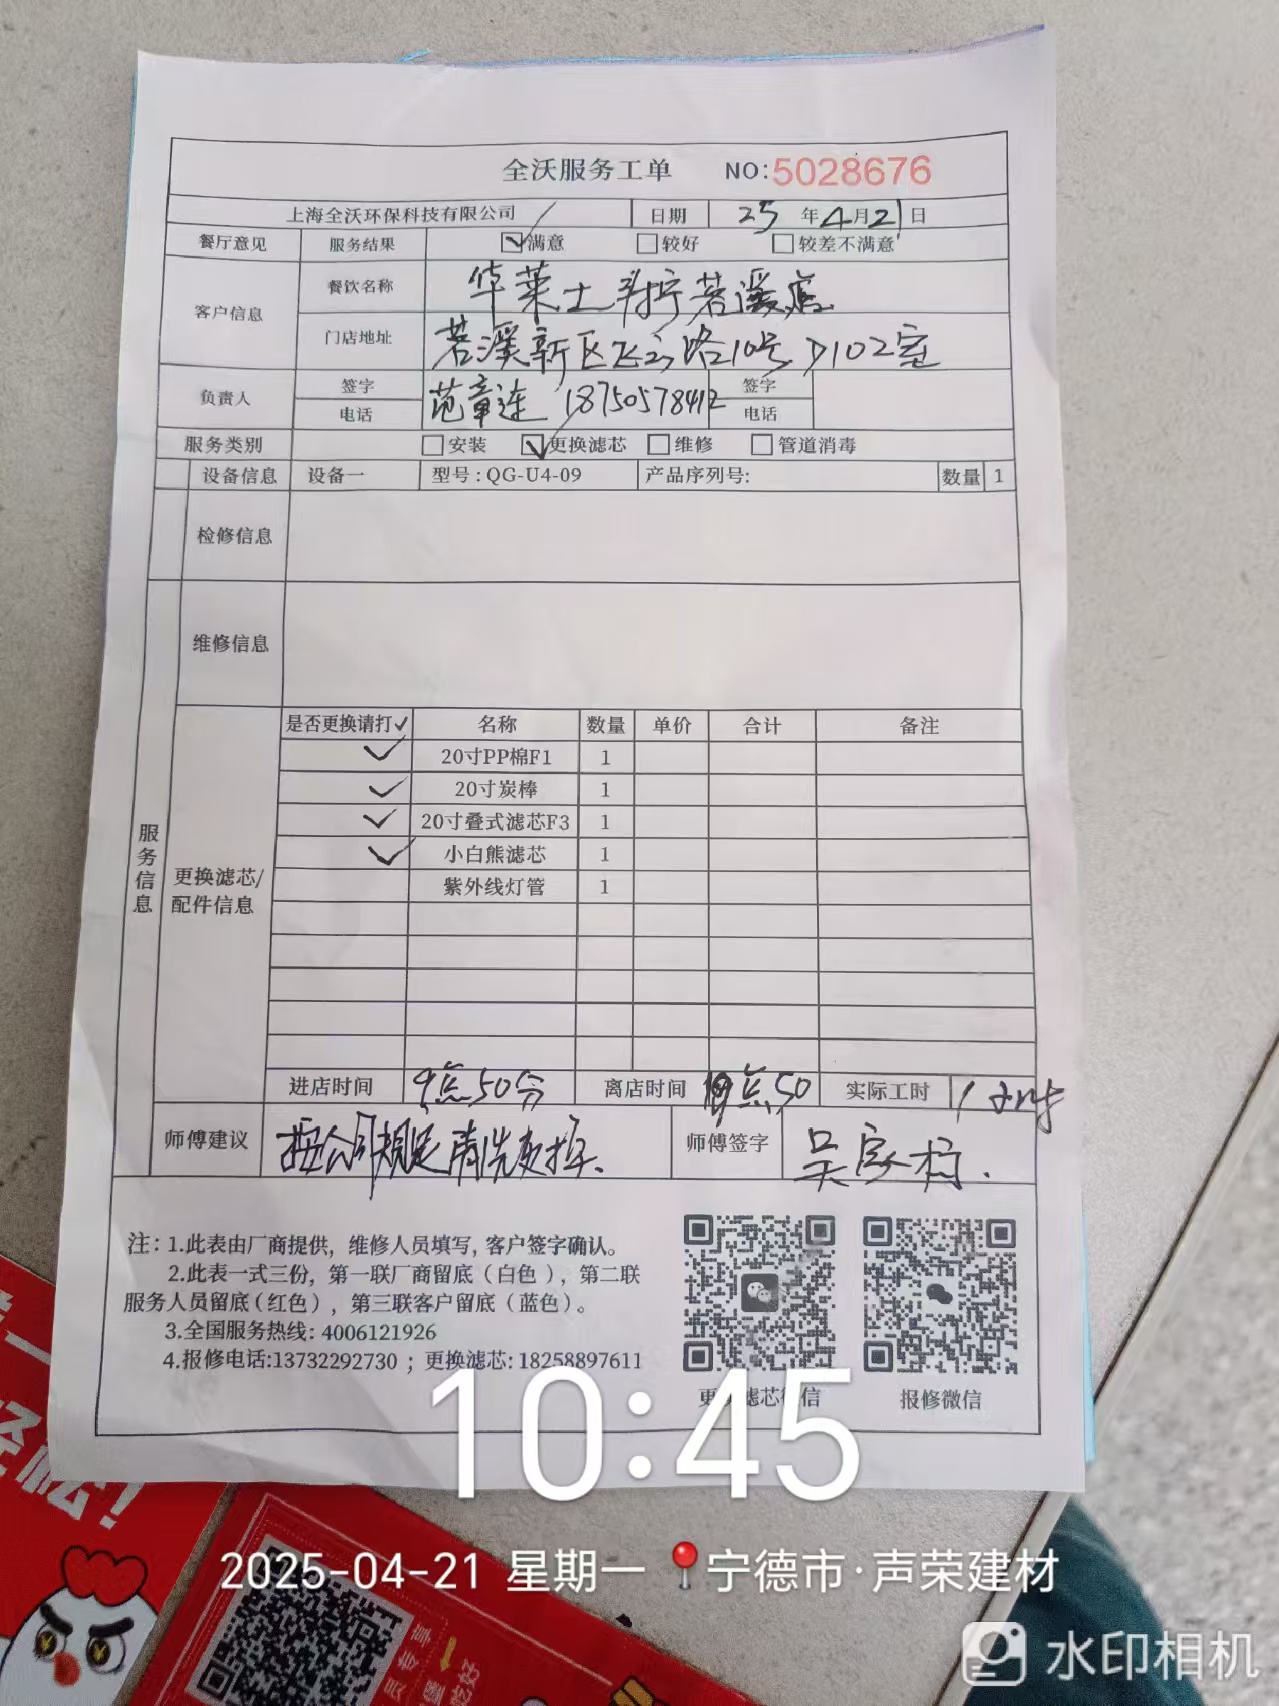 全沃服务工单 NO:5028676
上海全沃环保科技有限公司 日期 25 年 4 月 21 日
餐厅意见 服务结果 ☑满意 □较好 □较差不满意
客户信息 餐饮名称 华莱士寿宁茗溪店
门店地址 茗溪新区飞云路10号 D102室
负责人 签字 范章连 18750578412 签字
电话 电话
服务类别 □安装 ☑更换滤芯 □维修 □管道消毒
设备信息 设备一 型号:QG-U4-09 产品序列号: 数量 1
检修信息
维修信息
服务信息
更换滤芯/
配件信息
是否更换请打✓ 名称 数量 单价 合计 备注
✓ 20寸PP棉F1 1
✓ 20寸炭棒 1
✓ 20寸叠式滤芯F3 1
✓ 小白熊滤芯 1
紫外线灯管 1
进店时间 9点50分 离店时间 10点50 实际工时 1小时
师傅建议 按公司规定清洗更换. 师傅签字 吴家
注: 1.此表由厂商提供, 维修人员填写, 客户签字确认。
2.此表一式三份, 第一联厂商留底(白色), 第二联
服务人员留底(红色), 第三联客户留底(蓝色)。
3.全国服务热线: 4006121926
4.报修电话:13732292730 ; 更换滤芯: 18258897611
更换滤芯微信 报修微信
10:45
2025-04-21 星期一 宁德市·声荣建材
水印相机